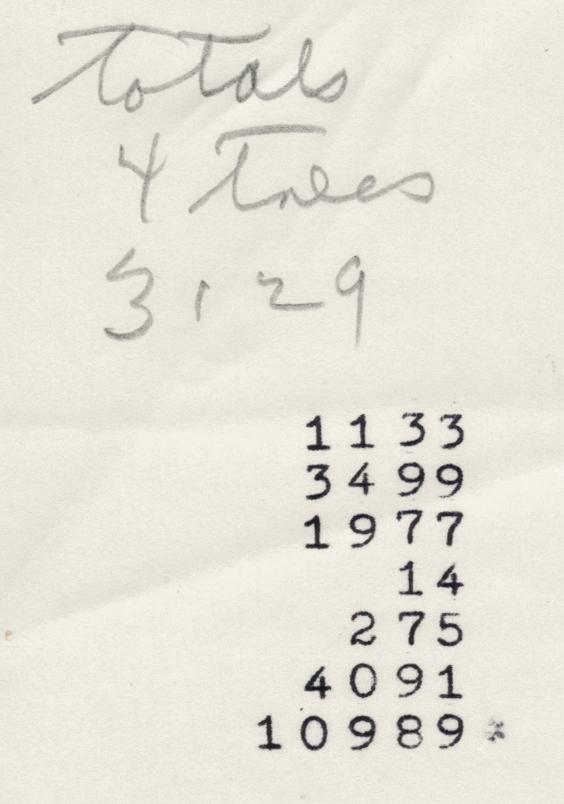 Totals
4
3129
1133
3499
1977
14
275
4091
10989 *